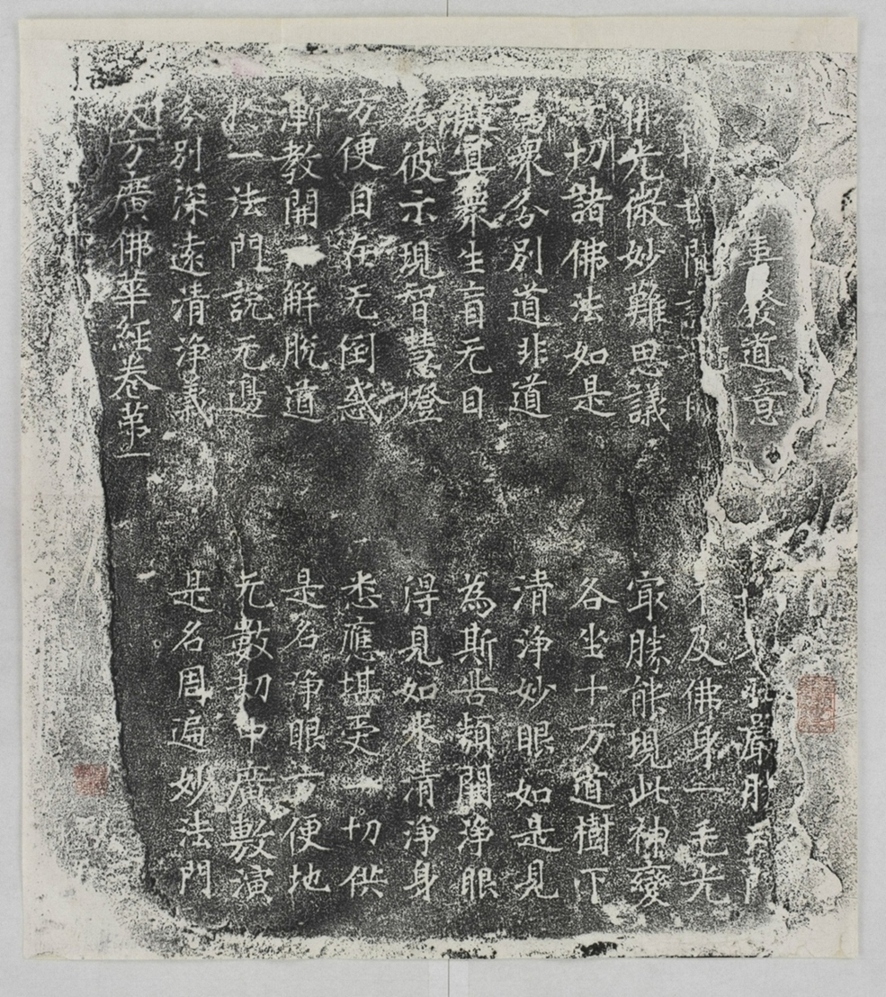 事發道意 嚴勝門
世間諸 不及佛身一毛光
佛光微妙難思議 冣勝能現此神變
切諸佛法如是 各坐十方道樹下
為衆分別道非道 清淨妙眼如是見
癡冥衆生盲无目 為斯苦類開淨眼
為彼示現智慧燈 得見如来清淨身
方便自在无倒惑 悉應堪受一切供
漸教開示解脫道 是名淨眼方便地
於一法門說无邊 无數劫中廣敷演
分別深遠清淨義 是名周遍妙法門
大方廣佛華經卷第一